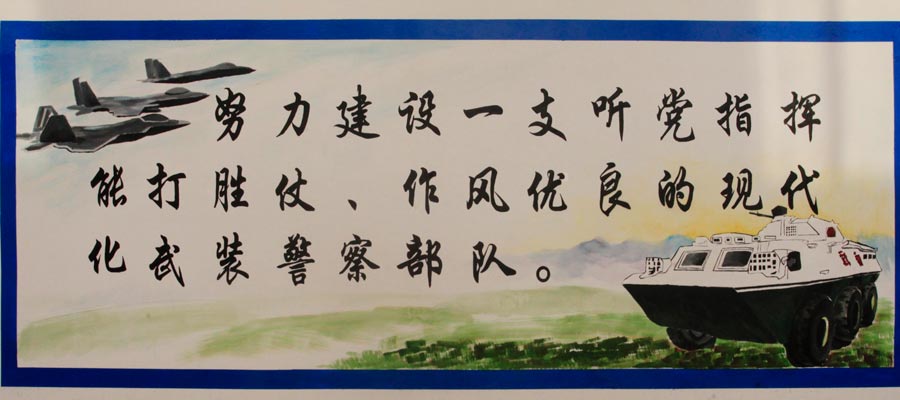 努力建设一支听党指挥
能打胜仗、作风优良的现代
化武装警察部队。